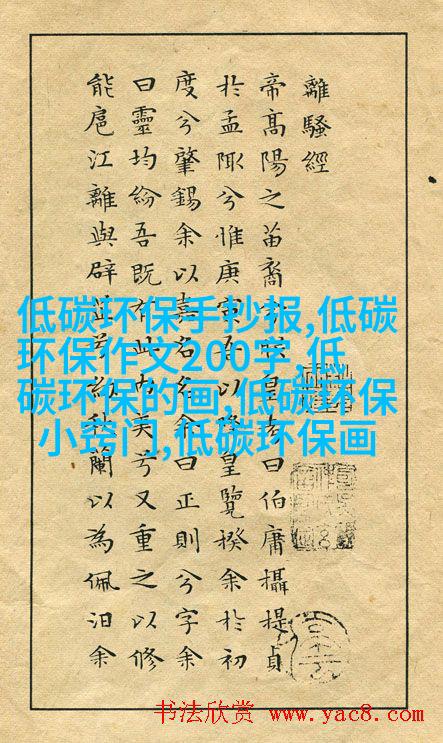 離騷經
帝髙陽之苗裔兮朕皇考曰伯庸攝提貞
於孟陬兮惟庚寅吾以降皇覽揆余於初
度兮肇錫余以嘉名名余曰正則兮字余
曰靈均紛吾既有此内美兮又重之以修
能扈江離與辟芷兮紉秋蘭以為佩汨余
低碳环保手抄报,低碳
环保作文200字,低
碳环保的画,低碳环保
小窍门,低碳环保画
书法欣赏 www.yac8.com